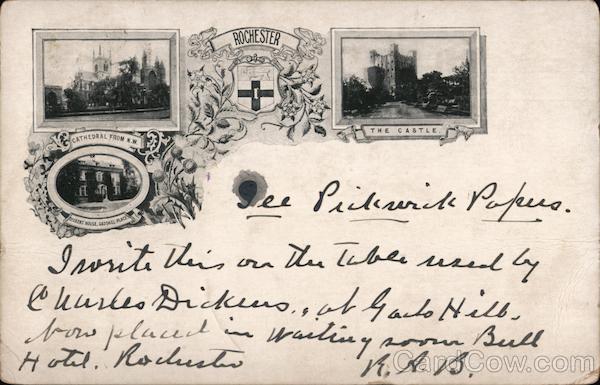 ROCHESTER
CATHEDRAL FROM N.W.
THE CASTLE.
See Pickwick Papers.
I write this on the table used by
Charles Dickens, at Gads Hill.
Now placed in waiting room Bull
Hotel. Rochester
R.A.B.
CardCow.com